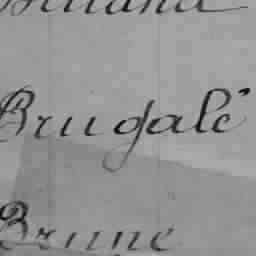 Brugalé
Brune